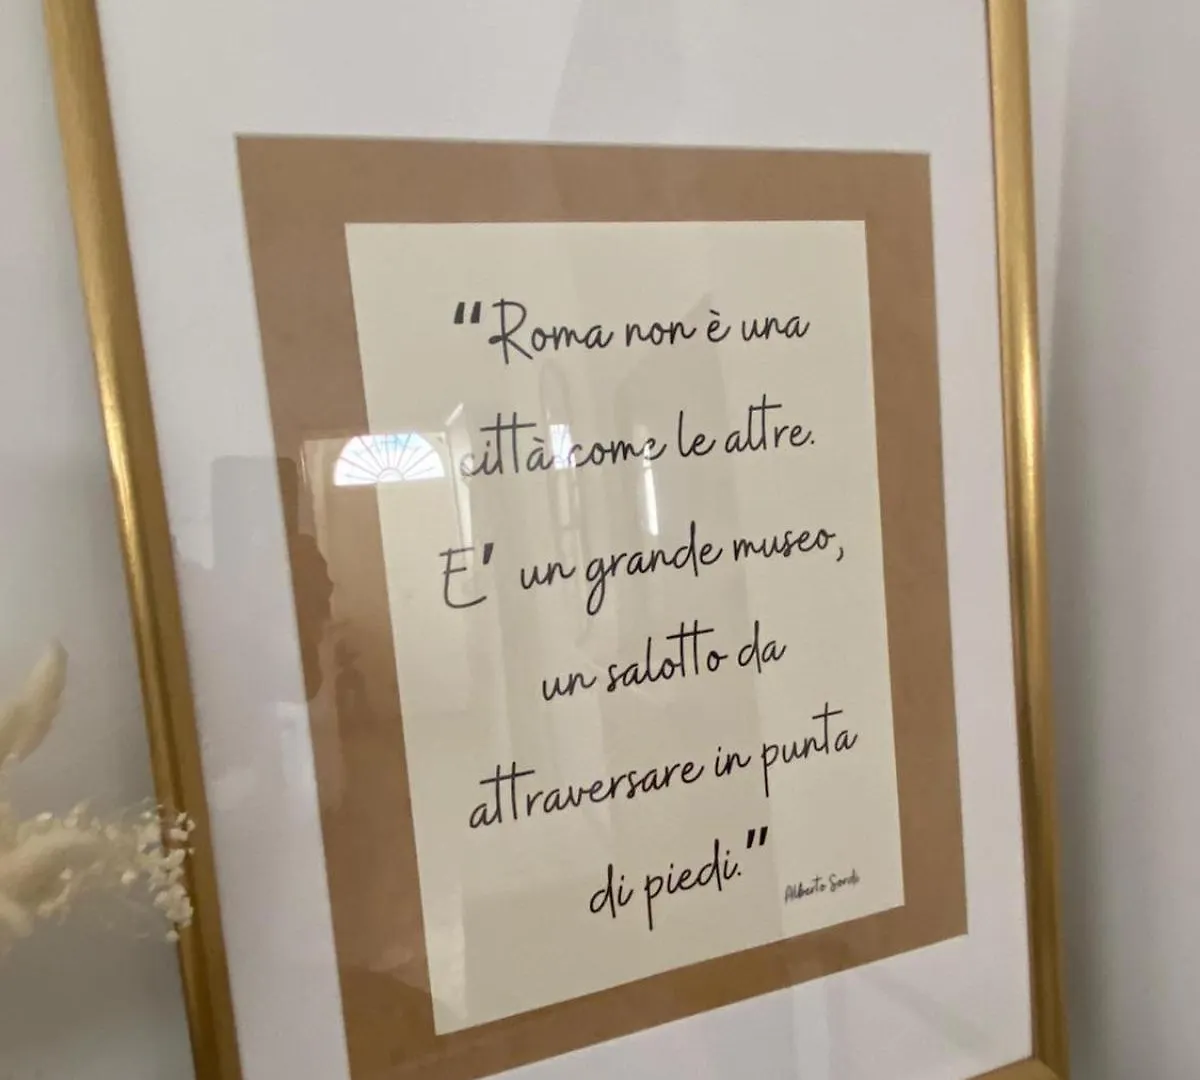 “Roma non è una
città come le altre.
E' un grande museo,
un salotto da
attraversare in punta
di piedi.”
Alberto Sordi